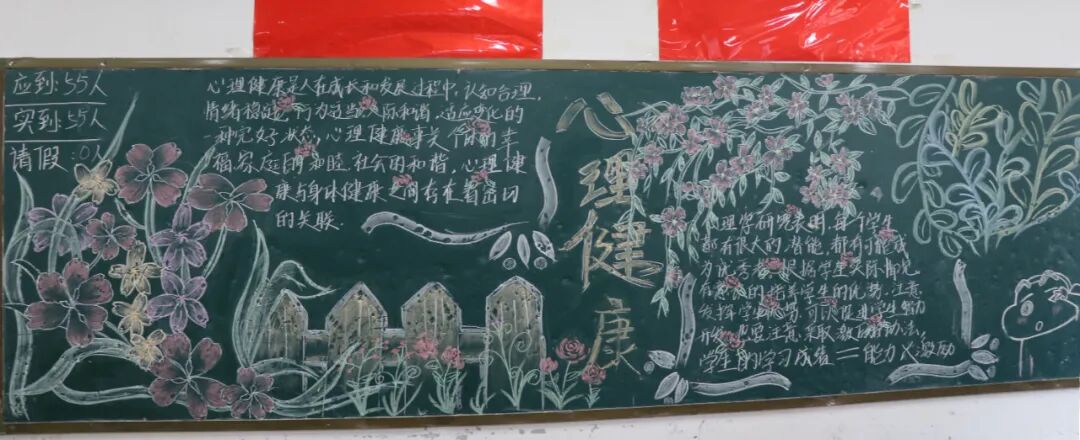 应到:55人
实到:55人
请假:0人
心理健康是人在成长和发展过程中,认知合理,
情绪稳定 行为适当 人际和谐,适应变化的
一种完好状态,心理健康事关个体的幸
福 家庭的和睦 社会的和谐,心理健
康与身体健康之间存在着密切
的关联.
心理健康
心理学研究表明,每个学生
都有很大的潜能,都有可能成
为优秀者 根据学生实际情况
有意识的培养学生的优势,注意
发挥学生 可以促进学生能力
开发 也要注意采取激励的办法,
学生的学习成者=能力×激励